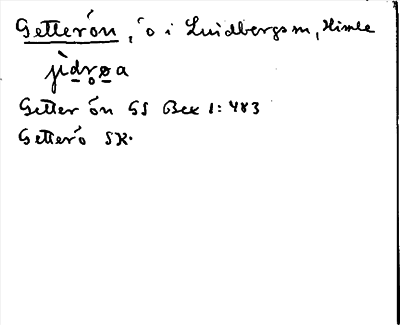 Getterön, ö i Lindbergs sn, Himle
Getter ön GS Bex 1:483
Getterö SK.